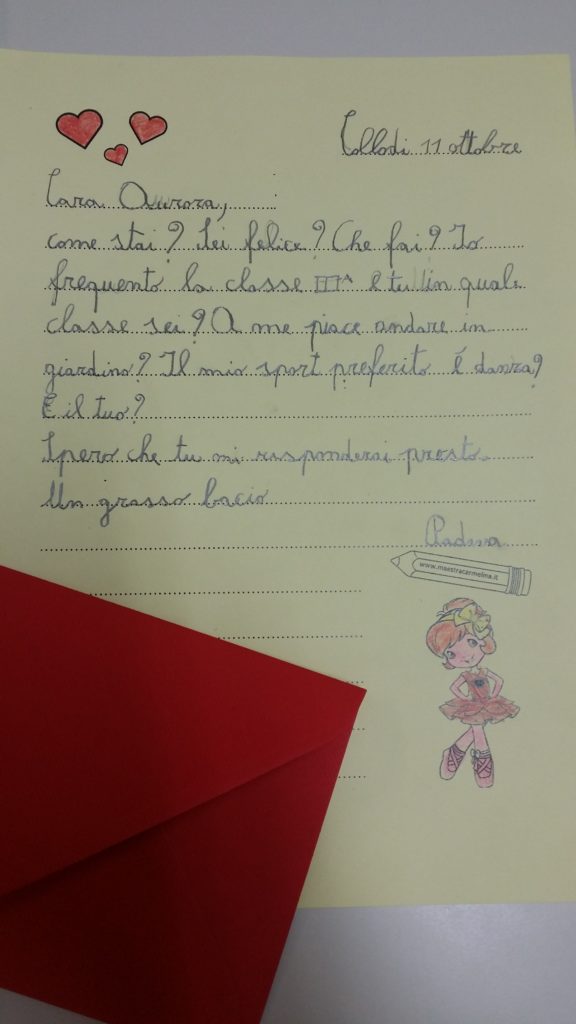 Collodi 11 ottobre
Cara Aurora,
come stai? Sei felice? Che fai? Io
frequento la classe IIIA e tu in quale
classe sei? A me piace andare in
giardino? Il mio sport preferito é danza?
E il tuo?
Spero che tu mi risponderai presto.
Un grosso bacio
www.maestracarmelina.it